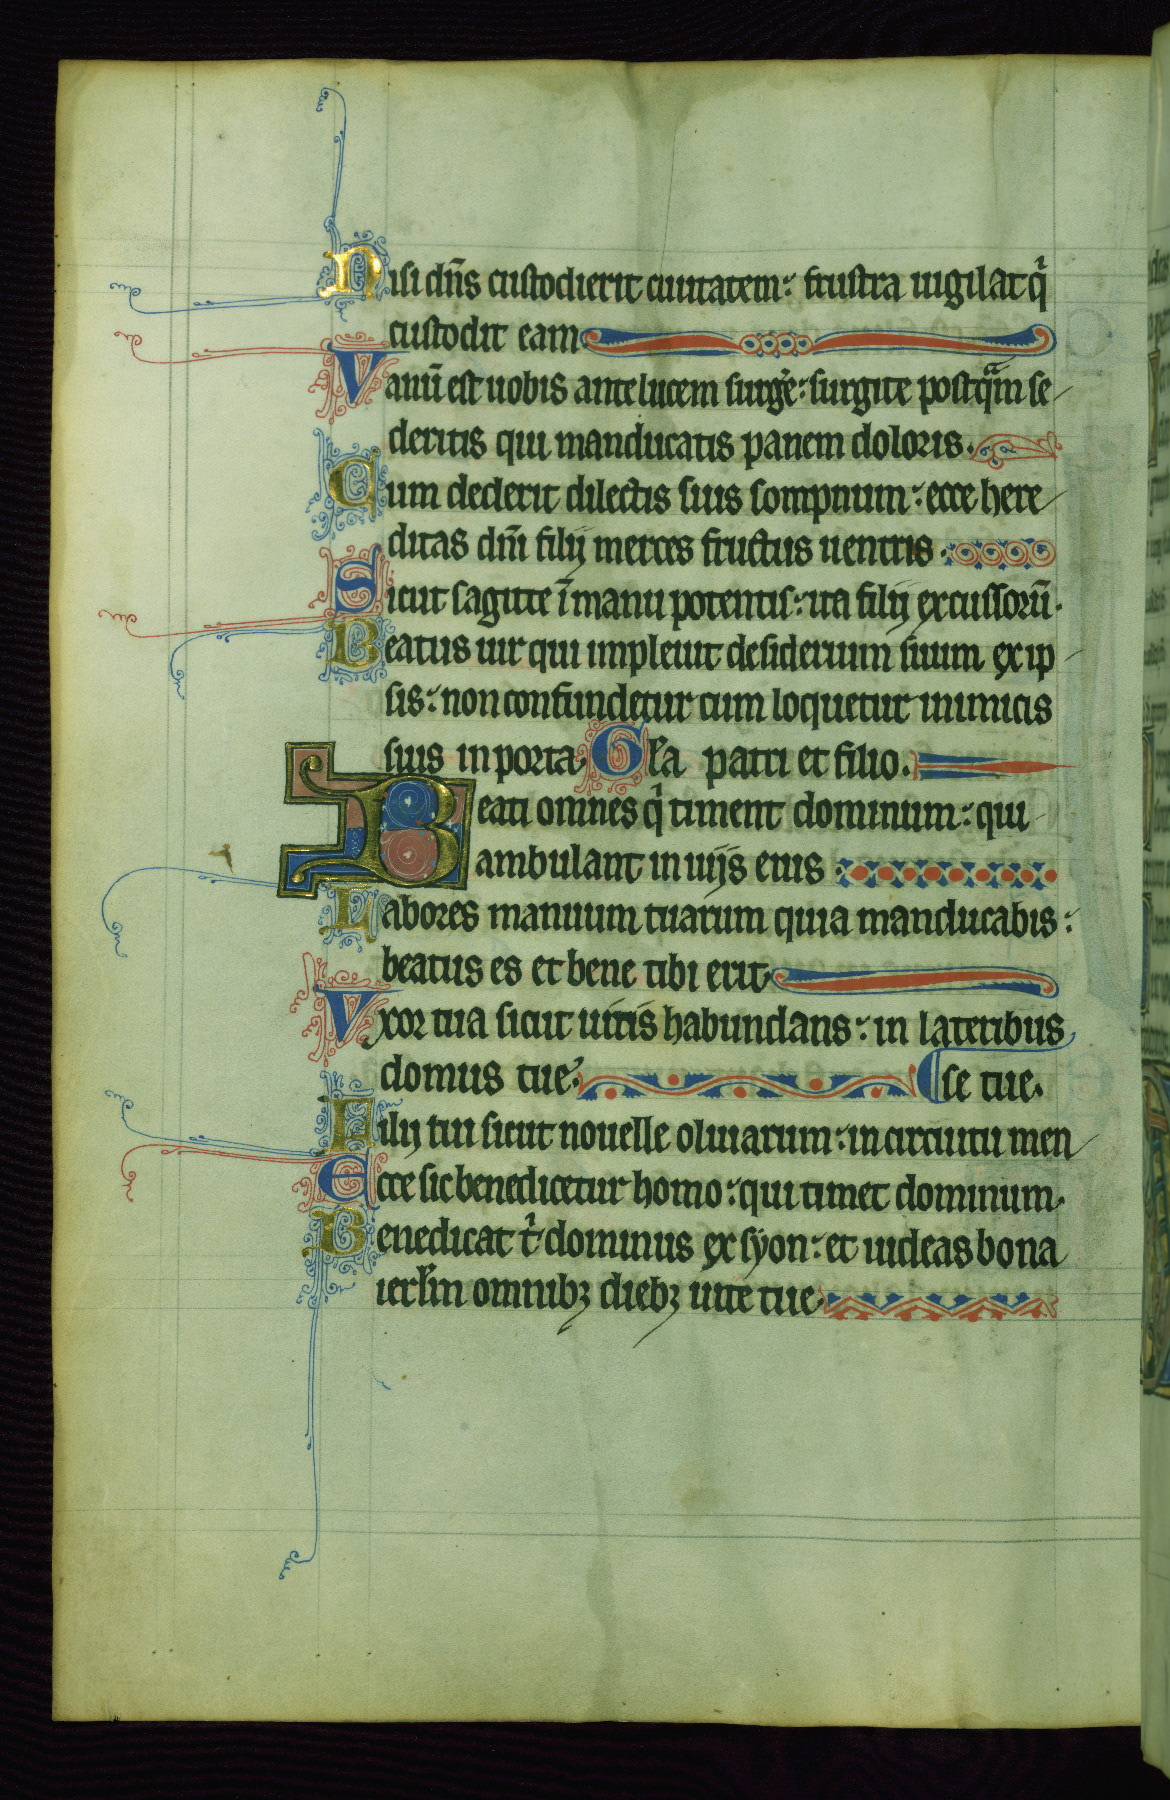 Nisi dn̄s custodierit ciuitatem: frustra uigilat qͥ
custodit eam
Vanū est uobis ante lucem surgͤe: surgite postqᷓm se
deritis qui manducatis panem doloris.
Cum dederit dilectis suis sompnum: ecce here
ditas dn̄i filij merces fructus uentris.
Sicut sagitte ī manu potentis: ita filij excussorū.
Beatus uir qui impleuit desiderium suum ex ip
sis: non confundetur cum loquetur inimicis
suis in porta. Gl̄a patri et filio.
Beati omnes qͥ timent dominum: qui
ambulant in uijs eius.
Labores manuum tuarum quia manducabis:
beatus es et bene tibi erit.
Vxor tua sicut uitis habundans: in lateribus
domus tue. se tue.
Filij tui sicut nouelle oliuarum: in circuitu men
Ecce sic benedicetur homo: qui timet dominum.
Benedicat tͥ dominus ex syon: et uideas bona
ierl̄m omnibꝫ diebꝫ uite tue.